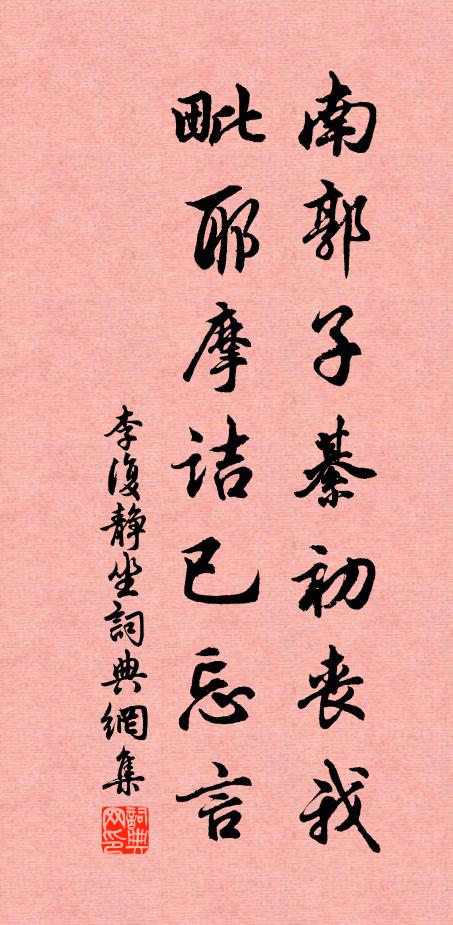 南郭子綦初丧我
毗耶摩诘已忘言
李復静坐詞典網集
詞典
网印